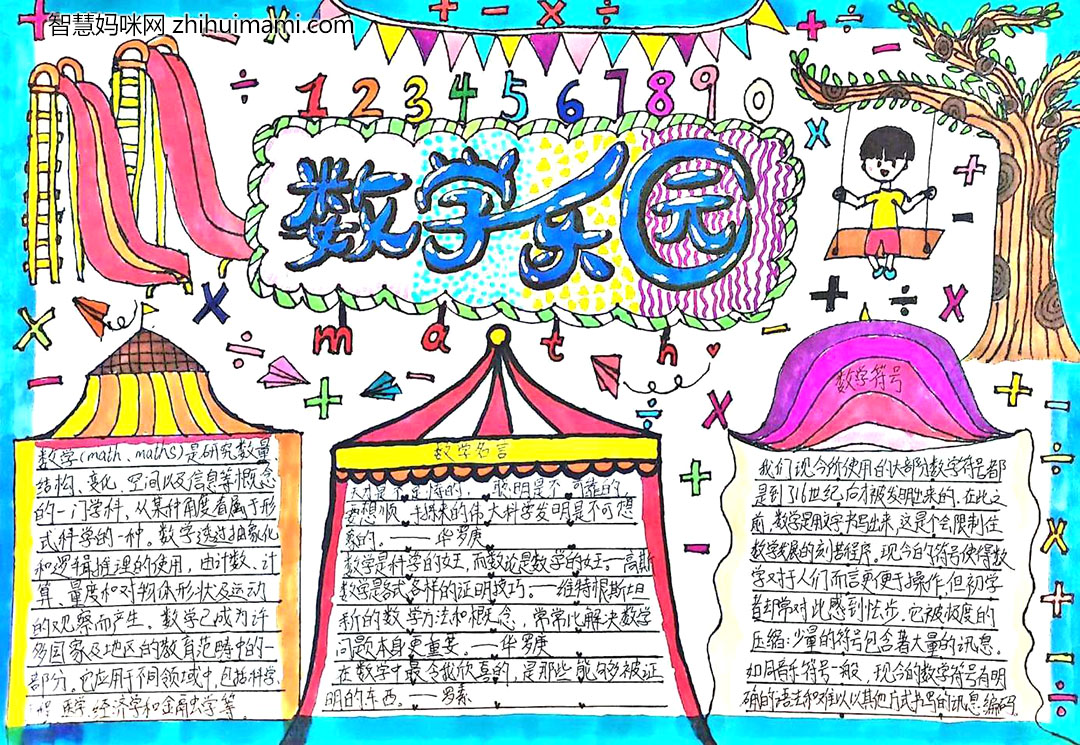 智慧妈咪网 zhihuimami.com
1 2 3 4 5 6 7 8 9 0
数学乐园
math
数学(math、maths)是研究数量
结构、变化、空间以及信息等概念
的一门学科，从某种角度看属于形
式科学的一种。数学透过抽象化
和逻辑推理的使用，由计数、计
算、量度和对物体形状及运动
的观察而产生。数学已成为许
多国家及地区的教育范畴中的一
部分。它应用于不同领域中，包括科学、
医学、经济学和金融学等。
数学名言
天才是不足恃的，聪明是不可靠的，
要想顺手 将来的伟大科学发明是不可想
象的。——华罗庚
数学是科学的女王，而数论是数学的女王。——高斯
数学是各式各样的证明技巧。——维特根斯坦
新的数学方法和概念，常常比解决数学
问题本身更重要。——华罗庚
在数学中最令我欣喜的，是那些能够被证
明的东西。——罗素
数学符号
我们现今所使用的大部分数学符号都
是到了16世纪后才被发明出来的。在此之
前，数学是用文字书写出来，这是个会限制住
数学发展的刻苦程序。现今的符号使得数
学对于人们而言更便于操作，但初学
者却常对此感到怯步。它被极度的
压缩：少量的符号包含着大量的讯息。
如同音乐符号一般，现今的数学符号有明
确的语法和难以以其他方式书写的讯息编码。